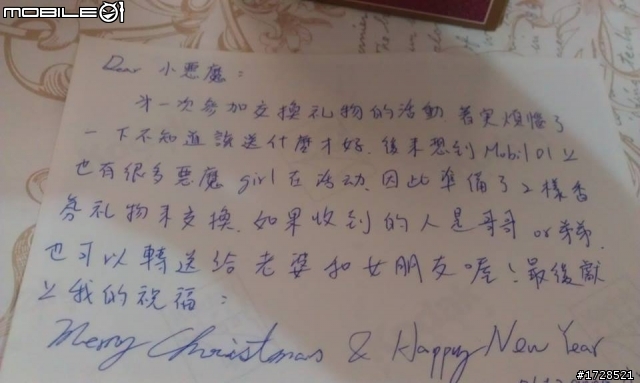 MOBILE01
Dear 小惡魔：
第一次參加交換礼物的活動 着实煩惱了
一下不知道該送什麼才好. 後來想到 Mobil 01上
也有很多惡魔 girl 在活动, 因此準備了2樣香
氛礼物來交換. 如果收到的人是哥哥 or 弟弟,
也可以轉送給老婆和女朋友喔！最後獻
上我的祝福：
Merry Christmas & Happy New Year
#1728521